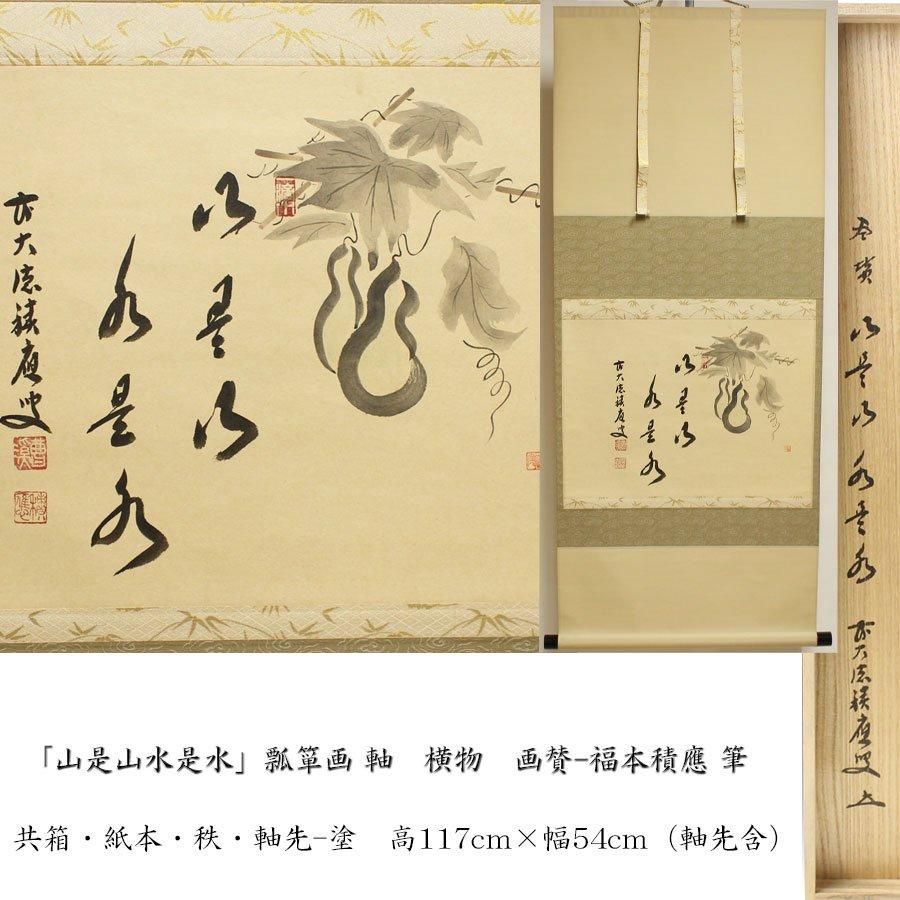 山是山
水是水
前大徳積應叟
曹溪
積應
画賛 山是山水是水 前大徳積應叟 (印)
「山是山水是水」瓢箪画 軸　横物　画賛-福本積應 筆
共箱・紙本・秩・軸先-塗　高117cm×幅54cm（軸先含）